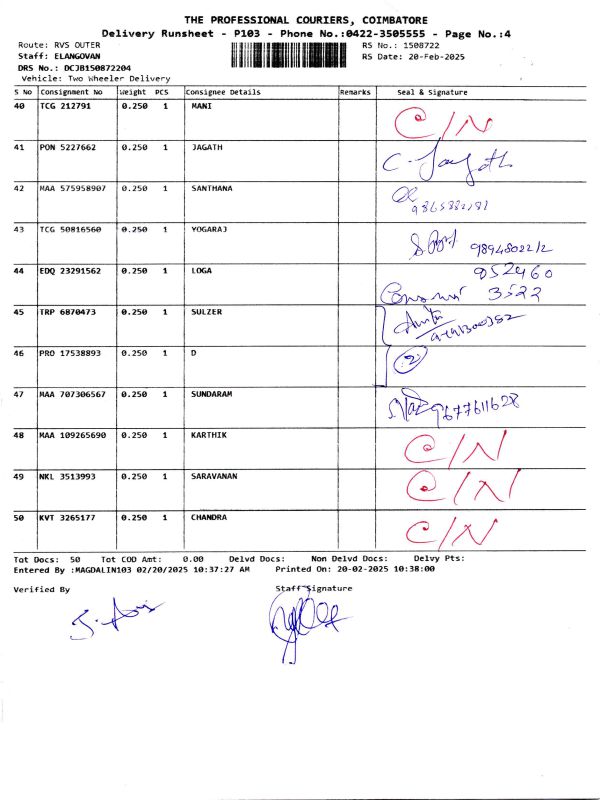 THE PROFESSIONAL COURIERS, COIMBATORE
Delivery Runsheet - P103 - Phone No.:0422-3505555 - Page No.:4
Route: RVS OUTER RS No.: 1508722
Staff: ELANGOVAN RS Date: 20-Feb-2025
DRS No.: DCJB150872204
Vehicle: Two Wheeler Delivery
S No Consignment No Weight PCS Consignee Details Remarks Seal & Signature
40 TCG 212791 0.250 1 MANI C/N
41 PON 5227662 0.250 1 JAGATH C. Jagath
42 MAA 575958907 0.250 1 SANTHANA
43 TCG 50816560 0.250 1 YOGARAJ
44 EDQ 23291562 0.250 1 LOGA 952460
3522
45 TRP 6870473 0.250 1 SULZER
46 PRO 17538893 0.250 1 D 2
47 MAA 707306567 0.250 1 SUNDARAM 9677611628
48 MAA 109265690 0.250 1 KARTHIK C/N
49 NKL 3513993 0.250 1 SARAVANAN C/N
50 KVT 3265177 0.250 1 CHANDRA C/N
Tot Docs: 50 Tot COD Amt: 0.00 Delvd Docs: Non Delvd Docs: Delvy Pts:
Entered By :MAGDALIN103 02/20/2025 10:37:27 AM Printed On: 20-02-2025 10:38:00
Verified By Staff Signature